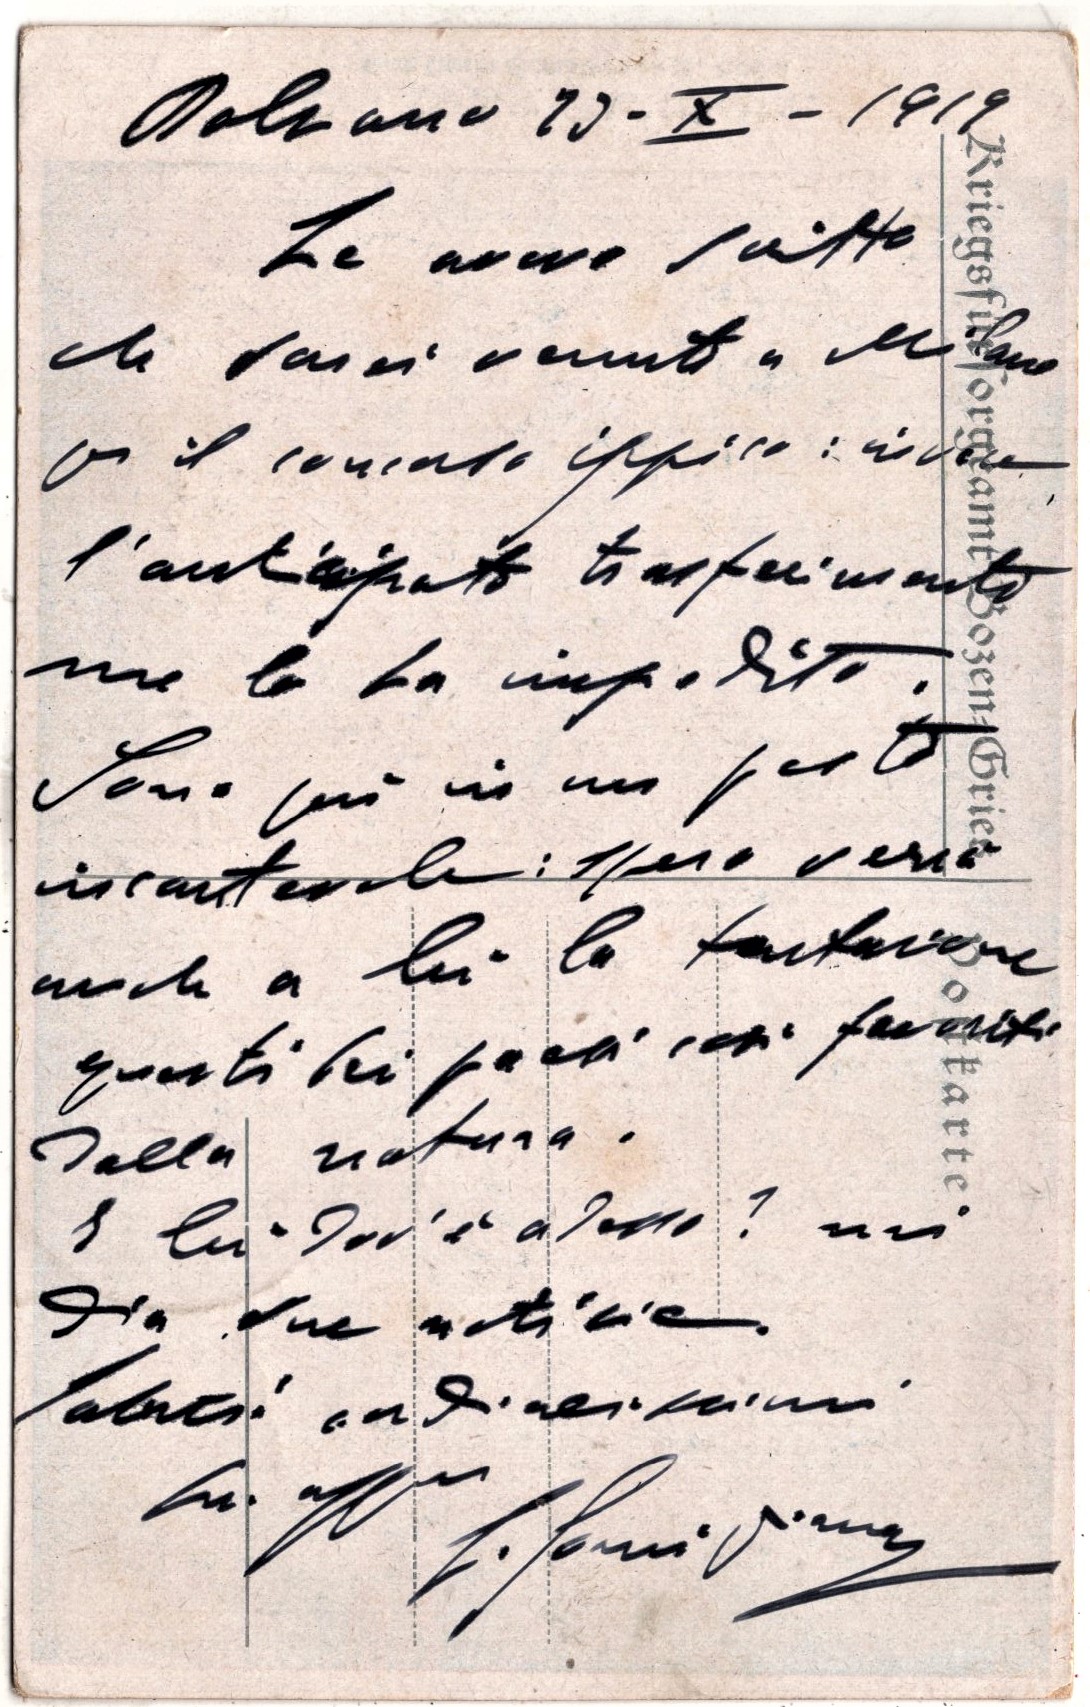 Bolzano 23-X-1919
Le avevo scritto
che sarei venuto a Milano
per il concorso ippico: invece
l'anticipato trasferimento
me lo ha impedito.
Sono qui in un posto
incantevole: spero verrà
anche a lei la tentazione
questi bei paesi così favoriti
dalla natura.
E lei dov'è adesso? mi
dia sue notizie.
Saluti cordialissimi
Suo aff
Kriegsfürsorgeamt Bozen-Gries
Postkarte